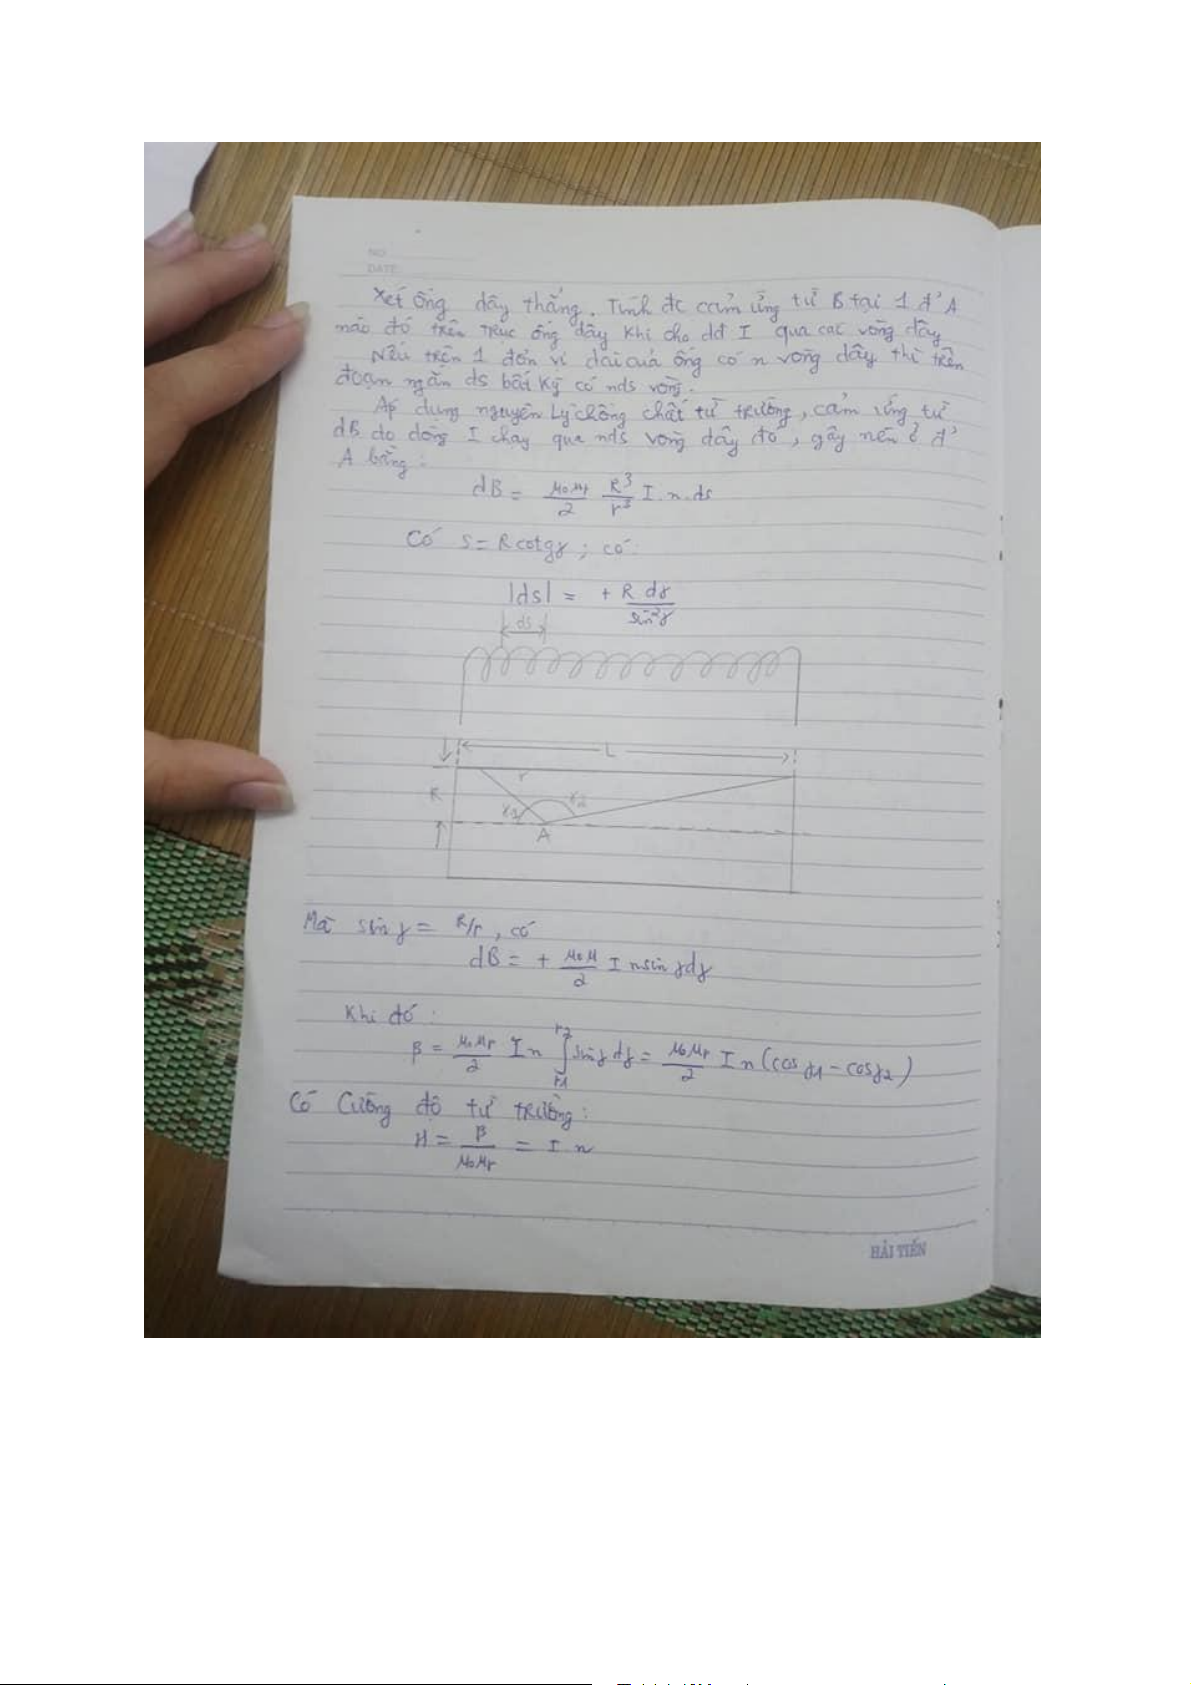 NO
DATE
Xét ống dây thẳng. Tính đc cảm ứng từ B tại 1 đ' A
nào đó trên trục ống dây khi cho dđ I qua các vòng dây
Nếu trên 1 đơn vị dài của ống có n vòng dây thì trên
đoạn ngắn ds bất kỳ có nds vòng.
Áp dụng nguyên lý chồng chất từ trường, cảm ứng từ
dB do dòng I chạy qua nds vòng dây đó, gây nên ở đ'
A bằng:
dB = μ₀μr/2 R³/r³ I.n.ds
Có s = R cotgγ ; có:
|ds| = + R dγ/sin²γ
ds
L
r
R
γ1 γ2
A
Mà sin γ = R/r, có
dB = + μ₀μ/2 I nsin γdγ
Khi đó:
B = μ₀μr/2 I n ∫r1r2 sinγ dγ = μ₀μr/2 I n (cos γ1 - cosγ2)
Có Cường độ từ trường:
H = B/μ₀μr = I.n
HẢI TIẾN